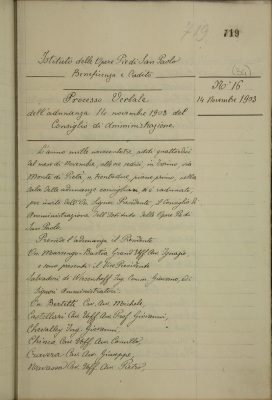 719
719
Istituto delle Opere Pie di San Paolo
Beneficenza e Credito
Processo Verbale
dell'adunanza 14 novembre 1903 del
Consiglio di Amministrazione.
N° 16
14 Novembre 1903
L'anno mille novecentotre, addì quattordici
del mese di Novembre, alle ore sedici, in Torino, via
Monte di Pietà, n. trentadue, piano primo, nella
sala delle adunanze consigliari si è radunato,
per invito dell'Ill. Signor Presidente, il Consiglio di
Amministrazione dell'Istituto delle Opere Pie di
San Paolo.
Presiede l'adunanza il Presidente
Di Marenga-Bastia Grand'Uff. Avv. Ignazio
e sono presenti il Vice Presidente
Signori Amministratori:
Bertetti Cav. Avv. Michele,
Castellari Cav. Uff. Avv. Prof. Giovanni,
Chevalley Ing. Giovanni,
Chiesa Cav. Uff. Avv. Camillo,
Cravero Cav. Avv. Giuseppe,
Cav. Uff. Avv. Pietro,